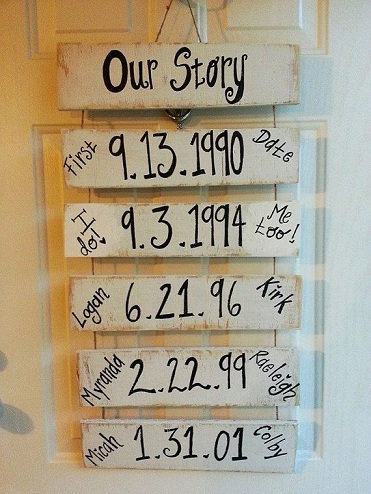 Our Story
First 9.13.1990 Date
I do! 9.3.1994 Me too!
Logan 6.21.96 Kirk
Myranda 2.22.99 Raeleigh
Micah 1.31.01 Colby